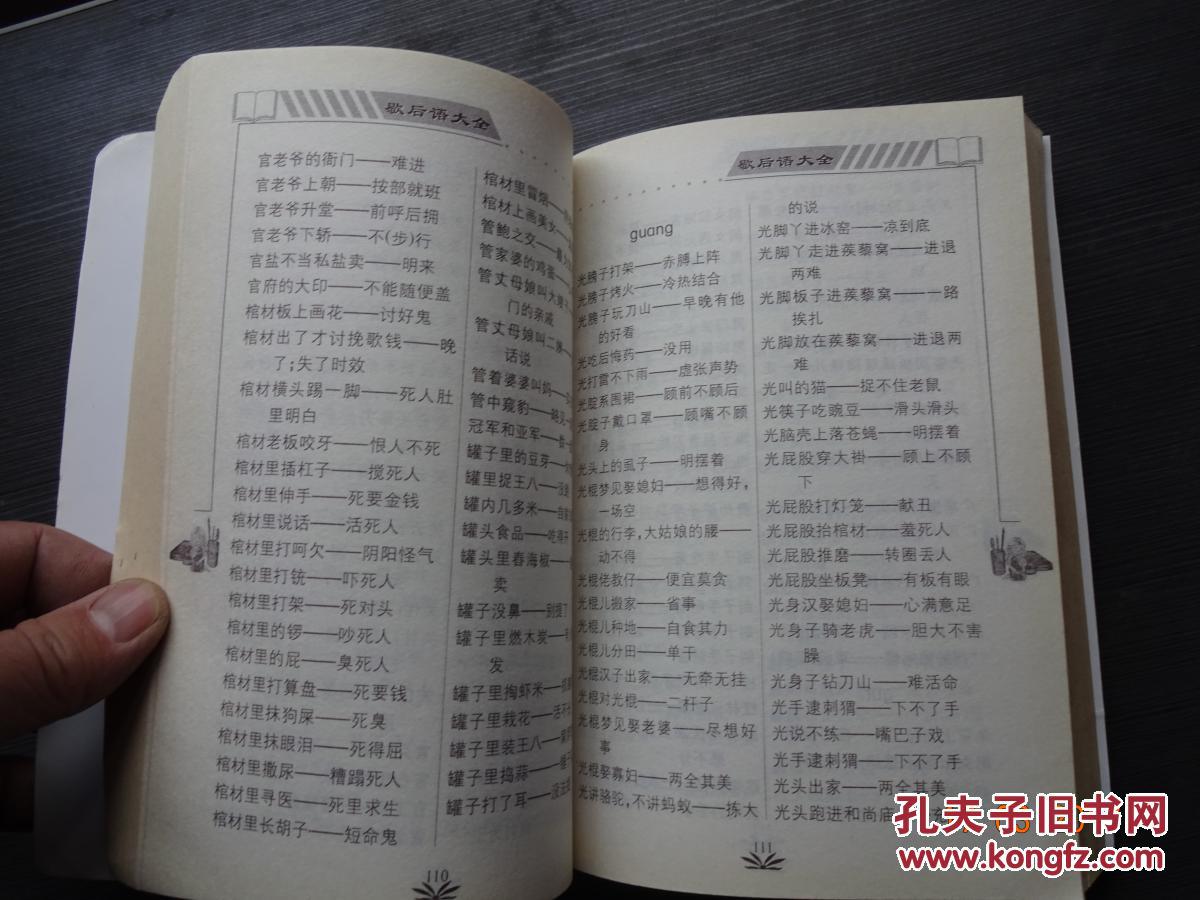 歇后语大全
官老爷的衙门——难进
官老爷上朝——按部就班
官老爷升堂——前呼后拥
官老爷下轿——不(步)行
官盐不当私盐卖——明来
官府的大印——不能随便盖
棺材板上画花——讨好鬼
棺材出了才讨挽歌钱——晚
了;失了时效
棺材横头踢一脚——死人肚
里明白
棺材老板咬牙——恨人不死
棺材里插杠子——搅死人
棺材里伸手——死要金钱
棺材里说话——活死人
棺材里打呵欠——阴阳怪气
棺材里打铳——吓死人
棺材里打架——死对头
棺材里的锣——吵死人
棺材里的屁——臭死人
棺材里打算盘——死要钱
棺材里抹狗屎——死臭
棺材里抹眼泪——死得屈
棺材里撒尿——糟蹋死人
棺材里寻医——死里求生
棺材里长胡子——短命鬼
棺材里冒烟——
棺材上画美女——
管鲍之交——
管家婆的鸡蛋——
管丈母娘叫大
门的亲戚
管丈母娘叫二婶——
话说
管着婆婆叫妈——
管中窥豹——略见
冠军和亚军——数一
罐子里的豆芽——
罐里捉王八——没
罐内几多米——自家
罐头食品——吃得开
罐头里舂海椒——
卖
罐子没鼻——别提了
罐子里燃木炭——有
发
罐子里掏虾米——抓
罐子里栽花——活不
罐子里装王八——
罐子里捣蒜——
罐子打了耳——没法提
110
歇后语大全
guang
光膀子打架——赤膊上阵
光膀子烤火——冷热结合
光膀子玩刀山——早晚有他
的好看
光吃后悔药——没用
光打雷不下雨——虚张声势
光腚系围裙——顾前不顾后
光腚子戴口罩——顾嘴不顾
身
光头上的虱子——明摆着
光棍梦见娶媳妇——想得好,
一场空
光棍的行李,大姑娘的腰——
动不得
光棍佬教仔——便宜莫贪
光棍儿搬家——省事
光棍儿种地——自食其力
光棍儿分田——单干
光棍汉子出家——无牵无挂
光棍对光棍——二杆子
光棍梦见娶老婆——尽想好
事
光棍娶寡妇——两全其美
光讲骆驼,不讲蚂蚁——拣大
的说
光脚丫进冰窑——凉到底
光脚丫走进蒺藜窝——进退
两难
光脚板子进蒺藜窝——一路
挨扎
光脚放在蒺藜窝——进退两
难
光叫的猫——捉不住老鼠
光筷子吃豌豆——滑头滑头
光脑壳上落苍蝇——明摆着
光屁股穿大褂——顾上不顾
下
光屁股打灯笼——献丑
光屁股抬棺材——羞死人
光屁股推磨——转圈丢人
光屁股坐板凳——有板有眼
光身汉娶媳妇——心满意足
光身子骑老虎——胆大不害
臊
光身子钻刀山——难活命
光手逮刺猬——下不了手
光说不练——嘴巴子戏
光手逮刺猬——下不了手
光头出家——两全其美
光头跑进和尚庙
111
孔夫子旧书网
www.kongfz.com